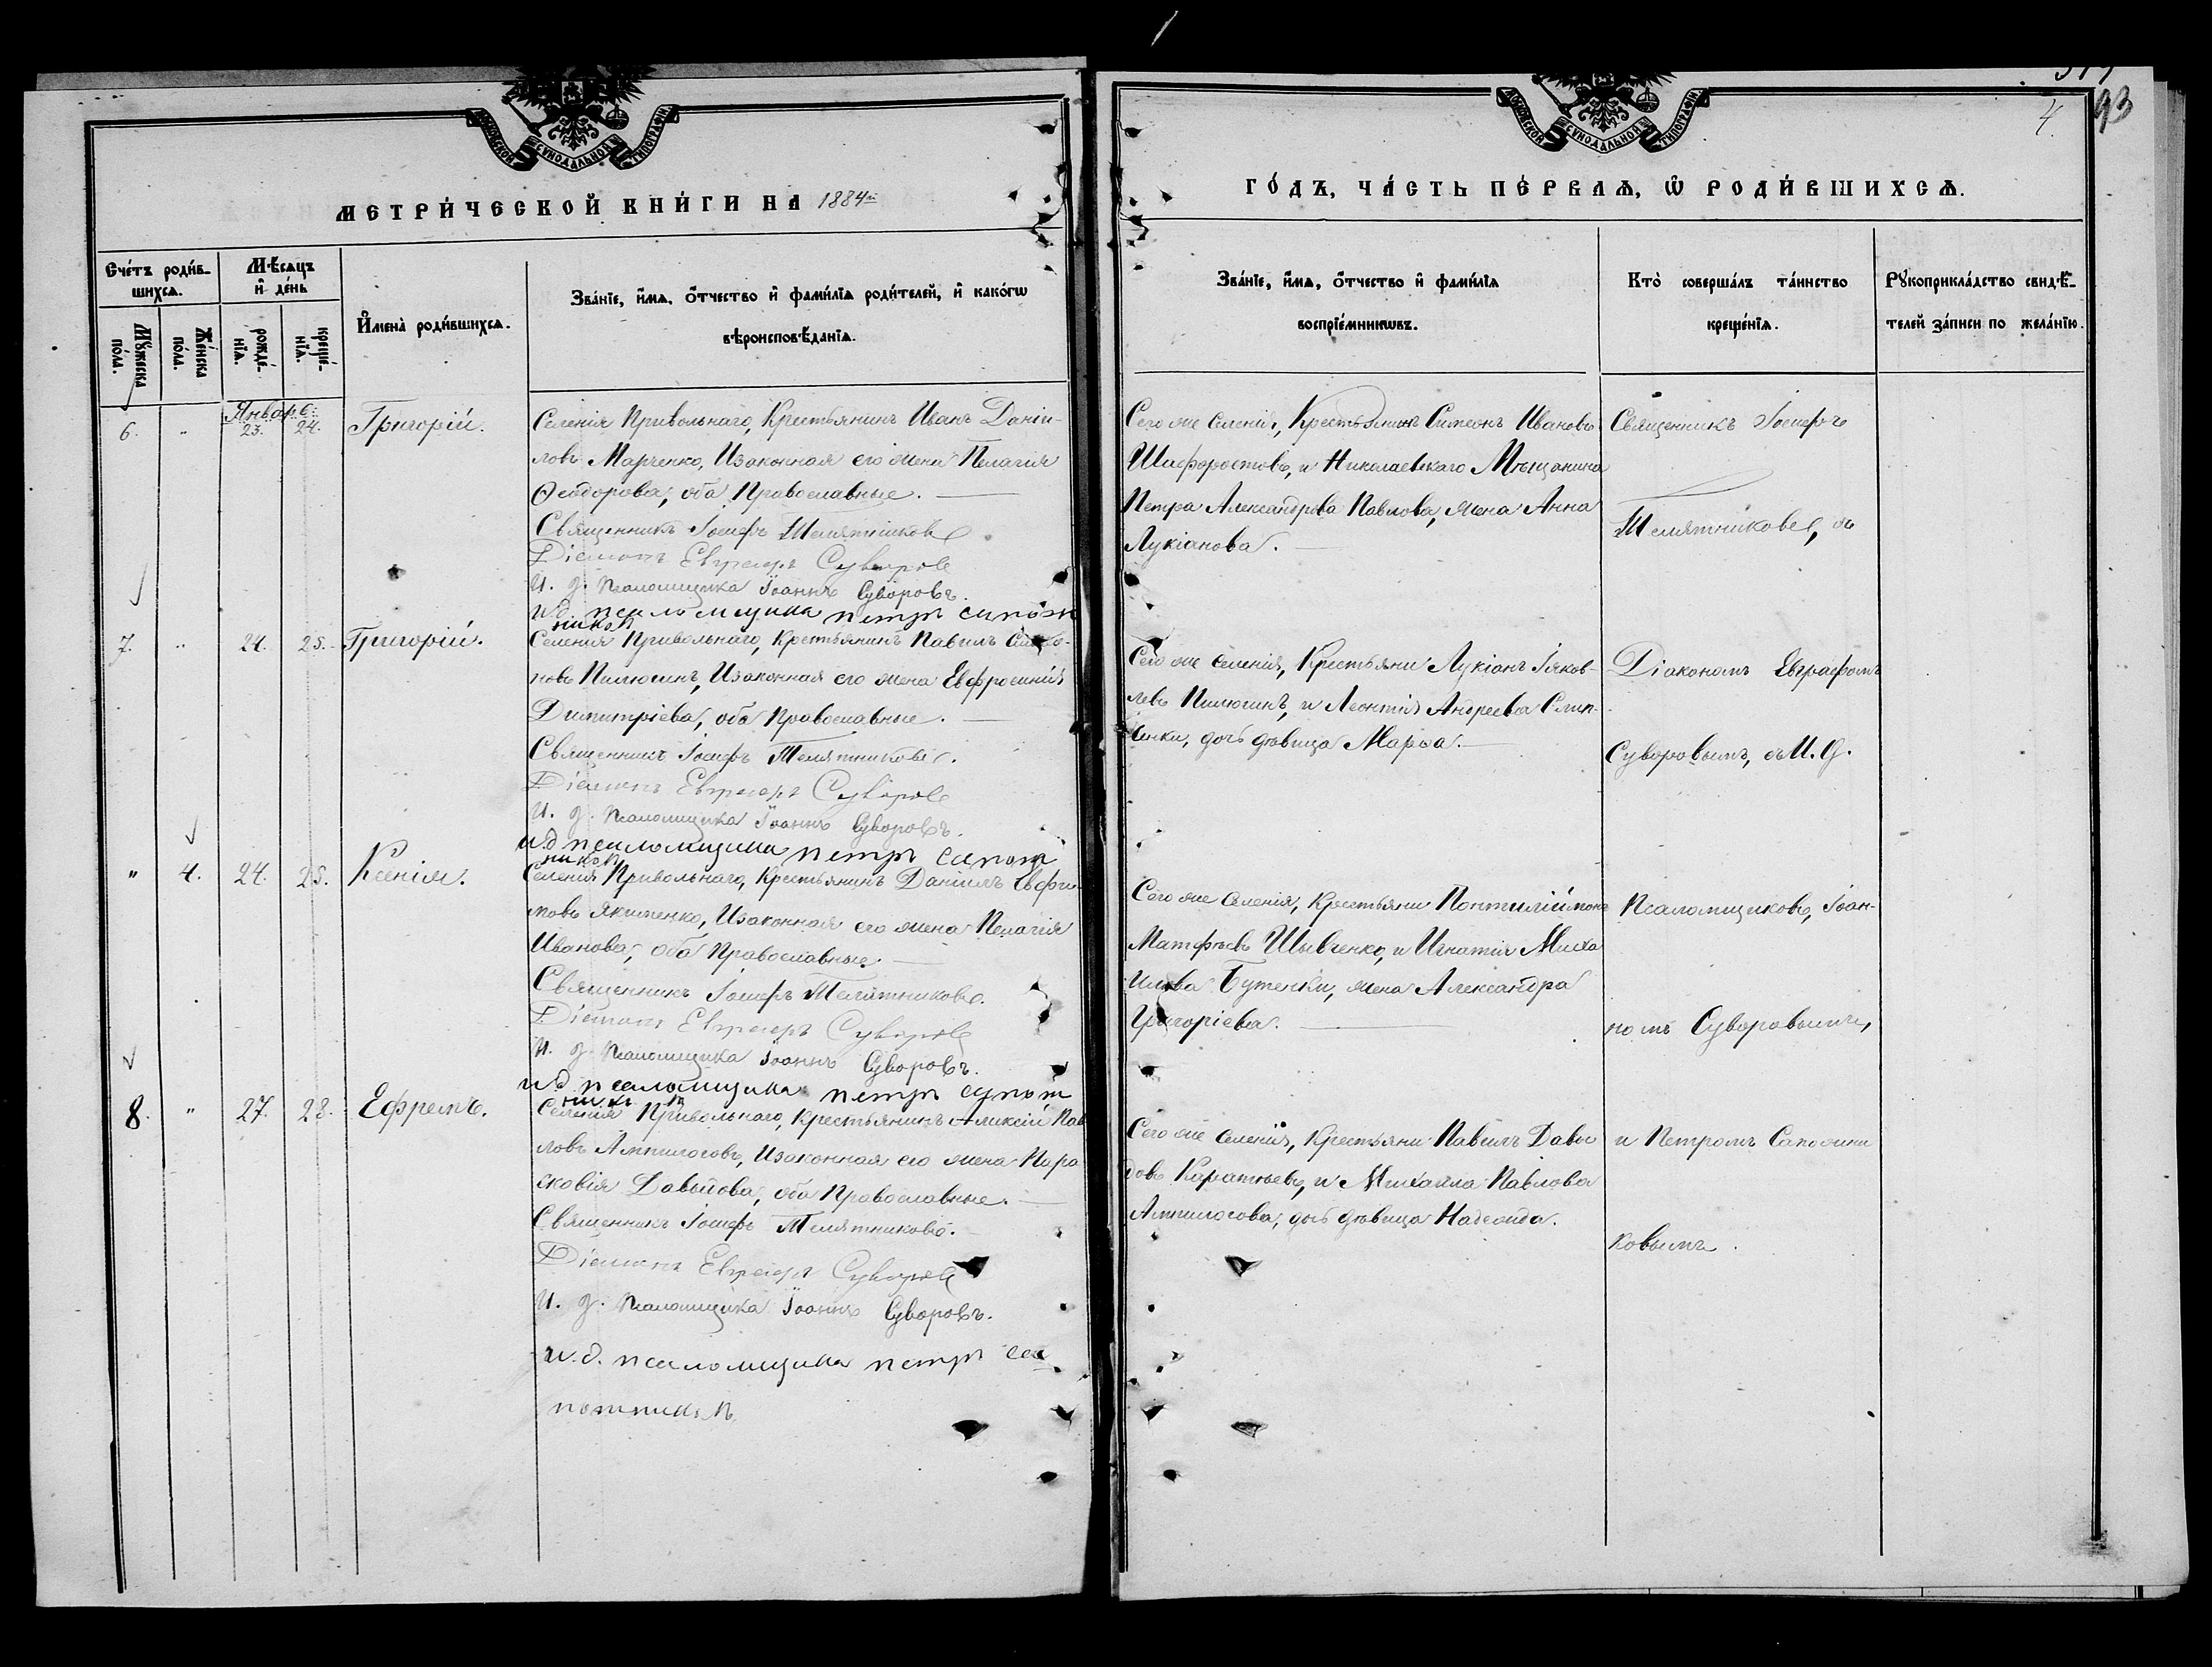 4.
93
МОСКОВСКОЙ СѴНОДАЛЬНОЙ ТИПОГРАФІИ
МОСКОВСКОЙ СѴНОДАЛЬНОЙ ТИПОГРАФІИ
МЕТРИ́ЧЕСКОЙ КНИ́ГИ НА 1884й
ГО́ДЪ, ЧА́СТЬ ПЕ́РВАѦ, Ѡ҆ РОДИ́ВШИХСѦ.
Сче́тъ роди́вшихсѧ.
Мꙋ́жеска по́ла.
Же́нска по́ла.
Мѣ́сѧцъ и҆ де́нь
рожде́нїѧ.
креще́нїѧ.
И҆мена̀ роди́вшихсѧ.
Зва́нїе, и҆́мѧ, ѻ҆́тчество и҆ фами́лїѧ роди́телей, и҆ како́гѡ
вѣроисповѣ́данїѧ.
Зва́нїе, и҆́мѧ, ѻ҆́тчество и҆ фами́лїѧ
воспрїе́мникѡвъ.
Кто̀ соверша́лъ та́инство
креще́нїѧ.
Рꙋкоприкла́дство свидѣ́-
телей за́писи по жела́нїю.
Январь:
6. " 23. 24. Григорій.
Селенія Привольнаго, Крестьянинъ Иванъ Даніи-
ловъ Марченко, Изаконная его жена Пелагія
Ѳеодорова, оба Православные.
Священникъ Іосифъ Телятниковъ
Діаконъ Евграфъ Суворовъ
И. д. псаломщика Іоаннъ Суворовъ.
и д. псаломщика петръ сапож
никовъ
Сего же селенія, Крестьянинъ Симеонъ Ивановъ
Шафоростовъ, и Николаевскаго Мѣщанина
Петра Александрова Павлова, жена Анна
Лукіанова.
Священникъ Іосифъ
Телятниковъ, съ
7. " 24. 25. Григорій.
Селенія Привольнаго, Крестьянинъ Павелъ
новъ Пилюгинъ, Изаконная его жена Евфросинія
Димитріева, оба Православные.
Священникъ Іосифъ Телятниковъ.
Діаконъ Евграфъ Суворовъ
И. д. псаломщика Іоаннъ Суворовъ.
и д псаломщика петръ сапож
никовъ
Сего же селенія, Крестьяни Лукіанъ Іяков-
левъ Пилюгинъ, и Леонтія Андреева Слип-
ченки, дочь дѣвица Марѳа.
Діакономъ Евграфомъ
Суворовымъ, съ И. д.
" 4. 24. 25. Ксенія.
Селенія Привольнаго, Крестьянинъ Даніилъ Евфи-
мовъ Якименко, Изаконная его жена Пелагія
Иванова, оба Православные.
Священникъ Іосифъ Телятниковъ.
Діаконъ Евграфъ Суворовъ
И. д. псаломщика Іоаннъ Суворовъ.
и д псаломщика петръ сапож
никовъ
Сего же селенія, Крестьяни
Матфѣевъ Шывченко, и Игнатія Миха
илова Бутенки, жена Александра
Григоріева.
Псаломщиковъ, Іоан-
номъ Суворовымъ,
8. " 27. 28. Ефремъ.
Селенія Привольнаго, Крестьянинъ Алексій Пав
ловъ Ампилоговъ, Изаконная его жена Пара
сковія Давыдова, оба Православные.
Священникъ Іосифъ Телятниковъ.
Діаконъ Евграфъ Суворовъ
И. д. псаломщика Іоаннъ Суворовъ.
и. д. псаломщика петръ са
пожниковъ
Сего же селенія, Крестьяни Павелъ Давы
довъ Каратаевъ, и Михаила Павлова
Ампилогова, дочь дѣвица Надежда.
и Петромъ Сапожни
ковымъ.